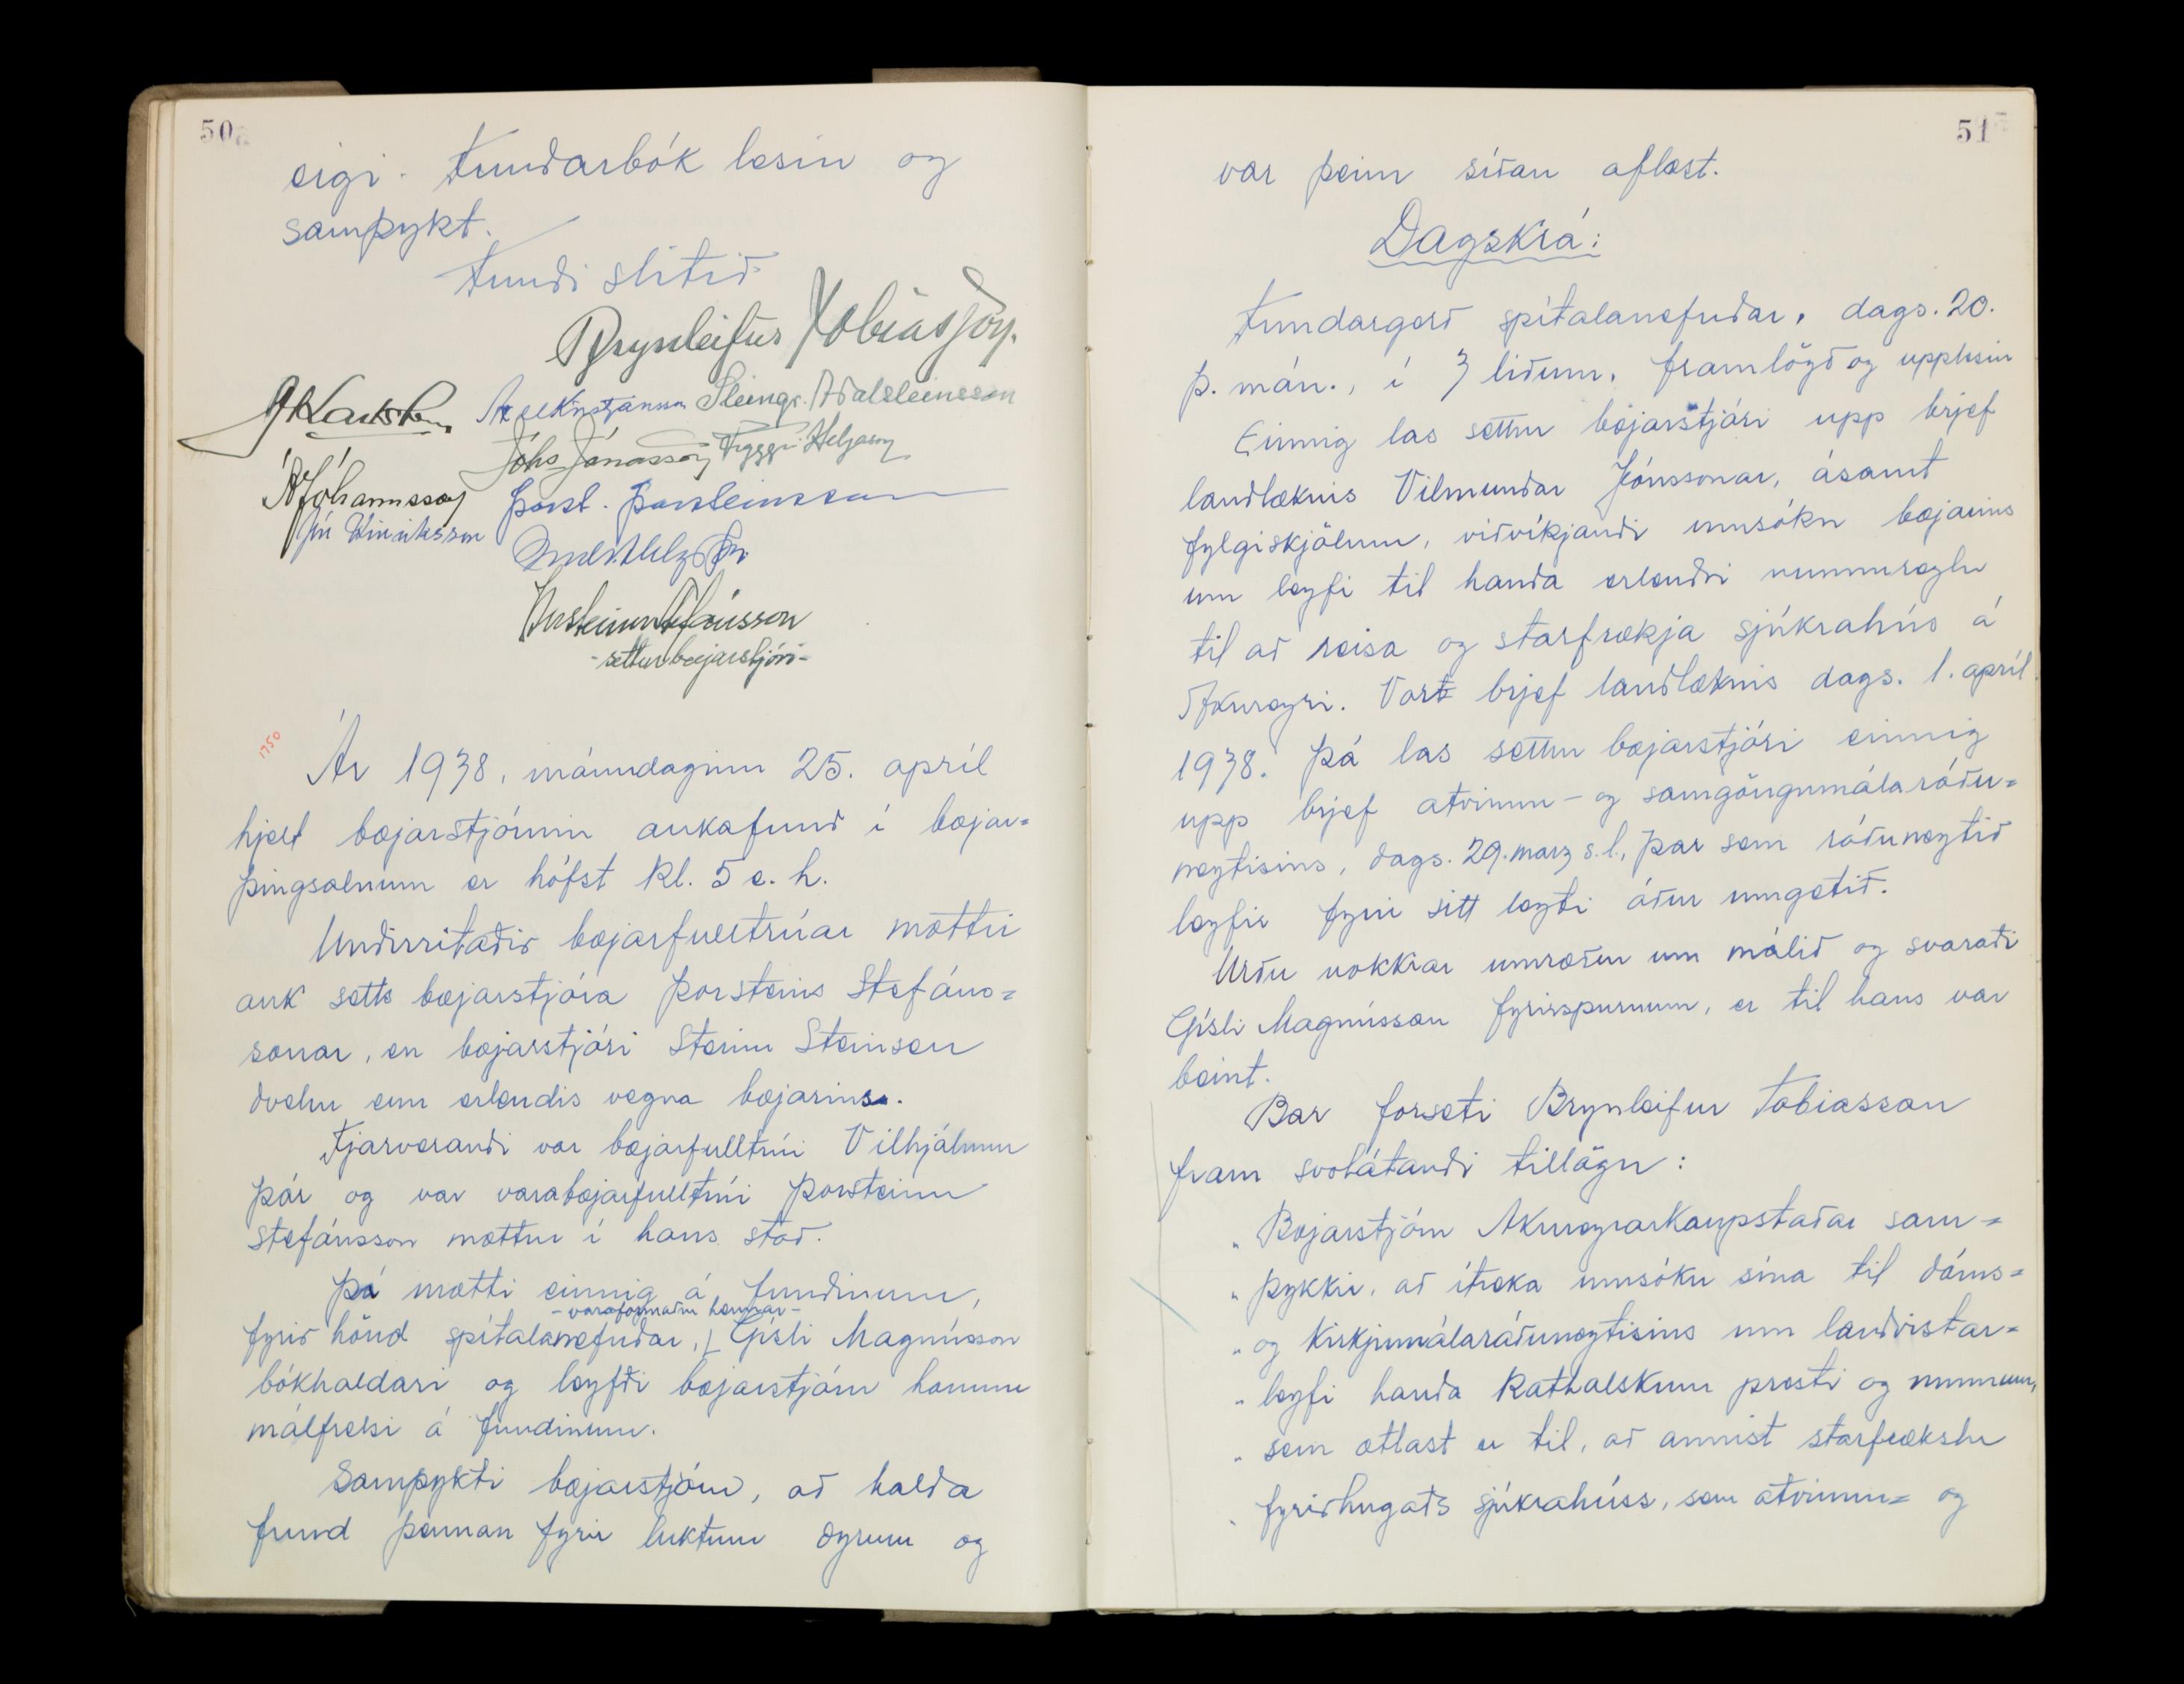 50
eigi. Fundarbók lesin og
samþykt.
Fundi slitið
Brynleifur Tobiasson.
Axel Kristjánsson Steingr. Aðalsteinsson
Jóhs. Jónasson Tryggvi Helgason
Á Jóhannsson Þorst. Þorsteinsson
Jón Hinriksson
Þorsteinn Stefánsson
- settur bæjarstjóri -
1750
Ár 1938, mánudaginn 25. apríl
hjelt bæjarstjórnin aukafund í bæjar=
þingsalnum er hófst kl. 5 e. h.
Undirritaðir bæjarfulltrúar mættir
auk setts bæjarstjóra Þorsteins Stefáns=
sonar, en bæjarstjóri Steinn Steinsen
dvelur enn erlendis vegna bæjarins.
Fjarverandi var bæjarfulltrúi Vilhjálmur
Þór og var varabæjarfulltrúi Þorsteinn
Stefánsson mættur í hans stað.
Þá mætti einnig á fundinum,
- varaformaður hennar -
fyrir hönd spítalanefndar, Gísli Magnússon
bókhaldari og leyfði bæjarstjórn honum
málfrelsi á fundinum.
Samþykti bæjarstjórn, að halda
fund þennan fyrir luktum dyrum og
51
var þeim síðan aflæst.
Dagskrá:
Fundargerð spítalanefndar, dags. 20.
þ. mán., í 3 liðum, framlögð og upplesin
Einnig las settur bæjarstjóri upp brjef
landlæknis Vilmundar Jónssonar, ásamt
fylgiskjölum, viðvíkjandi umsókn bæjarins
um leyfi til handa erlendri nunnureglu
til að reisa og starfrækja sjúkrahús á
Akureyri. Vart brjef landlæknis dags. 1. apríl
1938. Þá las settur bæjarstjóri einnig
upp brjef atvinnu- og samgöngumálaráðu=
neytisins, dags. 29. marz s.l., þar sem ráðuneytið
leyfir fyrir sitt leyti áður umgetið.
Urðu nokkrar umræður um málið og svaraði
Gísli Magnússon fyrirspurnum, er til hans var
beint.
Bar forseti Brynleifur Tobiasson
fram svohátandi tillögu:
„ Bæjarstjórn Akureyrarkaupstaðar sam=
„ þykkir, að ítreka umsókn sína til dóms=
„ og kirkjumálaráðuneytisins um landvistar=
„ leyfi handa kaþalskum presti og nunnum,
„ sem ætlast er til, að annist starfrækslu
„ fyrirhugaðs sjúkrahúss, sem atvinnu= og